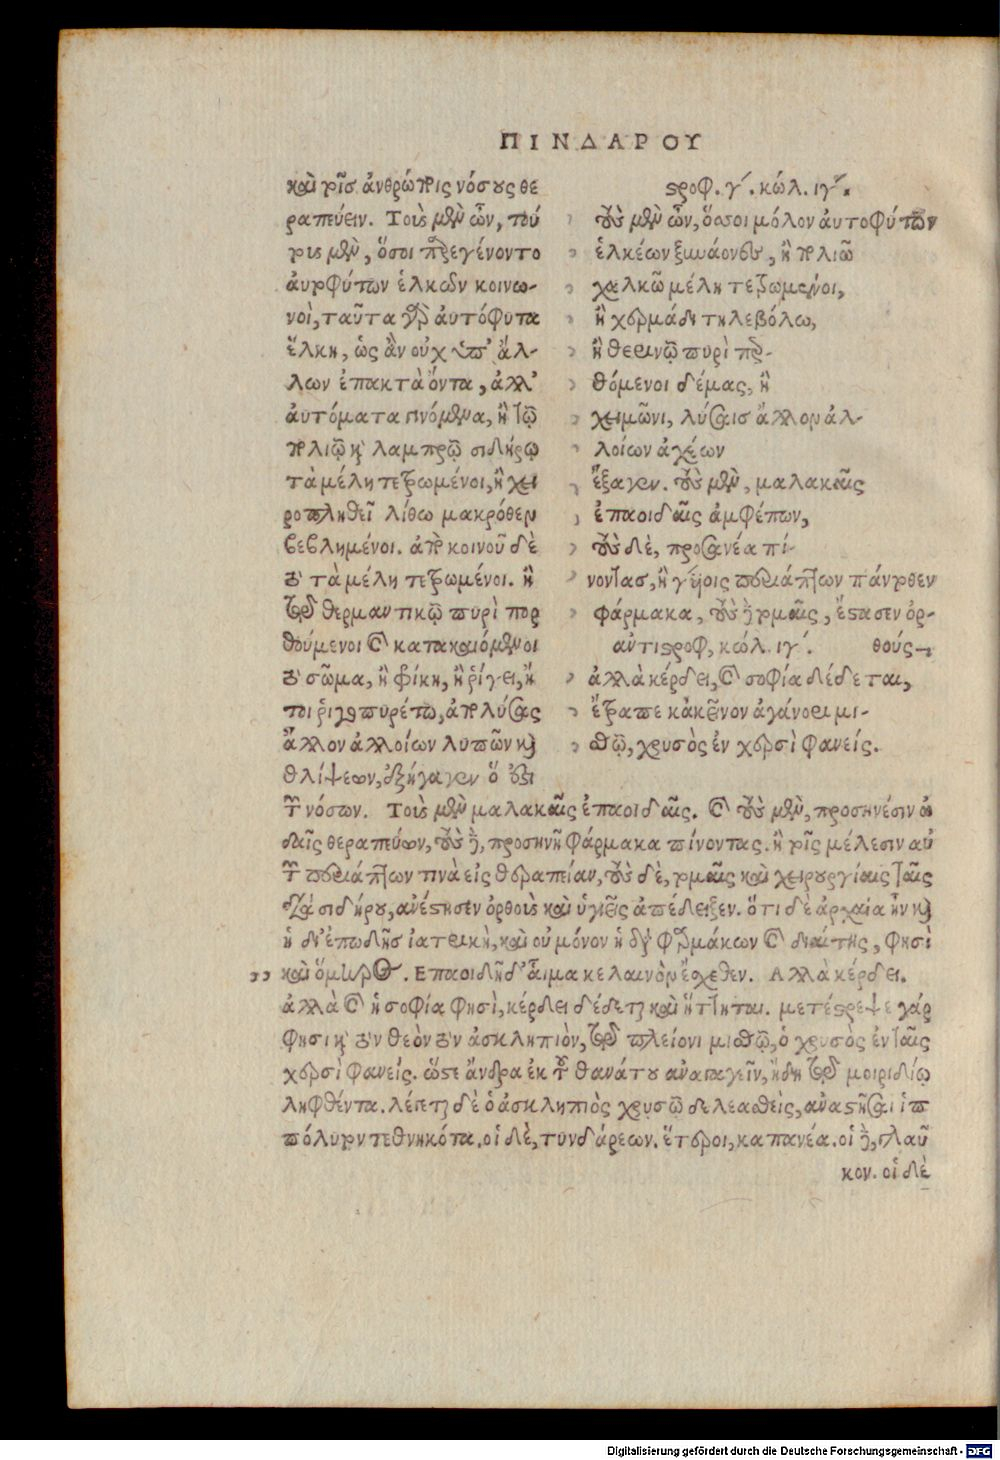 ΠΙΝΔΑΡΟΥ
καὶ τοῖσ ἀνθρώποις νόσους θε
ραπεύειν. Τοὺς μὲν ὦν, τού
τους μὲν, ὅσοι παρεγένοντο
ἀυτοφύτων ἑλκῶν κοινω-
νοὶ, ταῦτα γὰρ ἀυτόφυτα
ἕλκη, ὡς ἂν οὐχ ὑπ' ἄλ-
λων ἐπακτὰ ὄντα, ἀλλ'
ἀυτόματα γινόμενα, ἢ τῷ
πολιῷ καὶ λαμπρῷ σιδήρῳ
τὰ μέλη τετρωμένοι, ἢ χει
ροπληθεῖ λίθω μακρόθεν
βεβλημένοι. ἀπὸ κοινοῦ δὲ
τὸ τὰ μέλη τετρωμένοι. ἢ
τῷ θερμαντικῷ πυρὶ πορ
θούμενοι καὶ κατακαιόμενοι
τὸ σῶμα, ἢ φίκη, ἢ ῥίγει, ἤ
τοι ῥιγοπυρέτω, ἀπολύσας
ἄλλον ἀλλοίων λυπῶν καὶ
θλίψεων, ἐξήγαγεν ὅ ἐξι
στροφ. γ'. κώλ. ιγ'.
τοὺς μὲν ὦν, ὅσσοι μόλον ἀυτοφύτων
ἑλκέων ξυνάονες, ἢ πολιῶ
χαλκῶ μέλη τετρωμένοι,
ἢ χερμάδι τηλεβόλω,
ἢ θερινῷ πυρὶ περ-
θόμενοι δέμας, ἢ
χειμῶνι, λύσαισ ἄλλον ἀλ-
λοίων ἀχέων
ἔξαγεν. τοὺς μὲν, μαλακαῖς
ἐπαοιδαῖς ἀμφέπων,
τοὺς δὲ, προσανέα πί-
νοντας, ἢ γύιοις περιάπτων πάντοθεν
φάρμακα, τοὺς δὲ τομαῖς, ἔστασεν ὀρ-
θούς
αὐτιστροφ, κώλ. ιγ'.
ἀλλὰ κέρδει, καὶ σοφία δέδεται,
ἔτραπε κἀκεῖνον ἀγάνορι μι-
σθῷ, χρυσὸς ἐν χερσὶ φανείς.
τῶν νόσων. Τοὺς μὲν μαλακαῖς ἐπαοιδαῖς. καὶ τοὺς μὲν, προσηνέσιν ὠ
δαῖς θεραπεύων, τοὺς δὲ, προσηνῆ φάρμακα πίνοντας. ἢ τοῖς μέλεσιν αὐ
τῶν περιάπτων τινὰ εἰς θεραπείαν, τοὺς δὲ, τομαῖς καὶ χειρουργίαις ταῖς
διὰ σιδήρου, ανέστησεν ὀρθοὺς καὶ ὑγιεῖς ἀπέδειξεν. ὅτι δὲ ἀρχαία ἦν καὶ
ἡ δι' ἐπωδῆσ ἰατρικὴ, καὶ οὐ μόνον ἡ διὰ φαρμάκων καὶ διαίτης, φησὶ
,, καὶ ὅμηρος. Επαοιδῆ δ' αἷμα κελαινὸν ἔσχεθεν. Αλλὰ κέρδει.
ἀλλὰ καὶ ἡ σοφία φησὶ, κέρδει δέδεται καὶ ἥττηται. μετέστρεψε γάρ
φησι καὶ τὸν θεὸν τὸν ἀσκληπιὸν, τῷ πλείονι μισθῷ, ὁ χρυσὸς ἐν ταῖς
χερσὶ φανείς. ὥστε ἄνδρα ἐκ τοῦ θανάτου ἀναπαγεῖν, ἤδη τῷ μοιριδίῳ
ληφθέντα. λέγεται δὲ ὁ ἀσκληπιὸς χρυσῶ δελεασθεὶς, ἀναστῆσαι ἱπ
πόλυτον τεθνηκότα. οἱ δὲ, τυνδάρεων. ἕτεροι, καπανέα. οἱ δὲ, γλαῦ
κον. οἱ δὲ
Digitalisierung gefördert durch die Deutsche Forschungsgemeinschaft - DFG